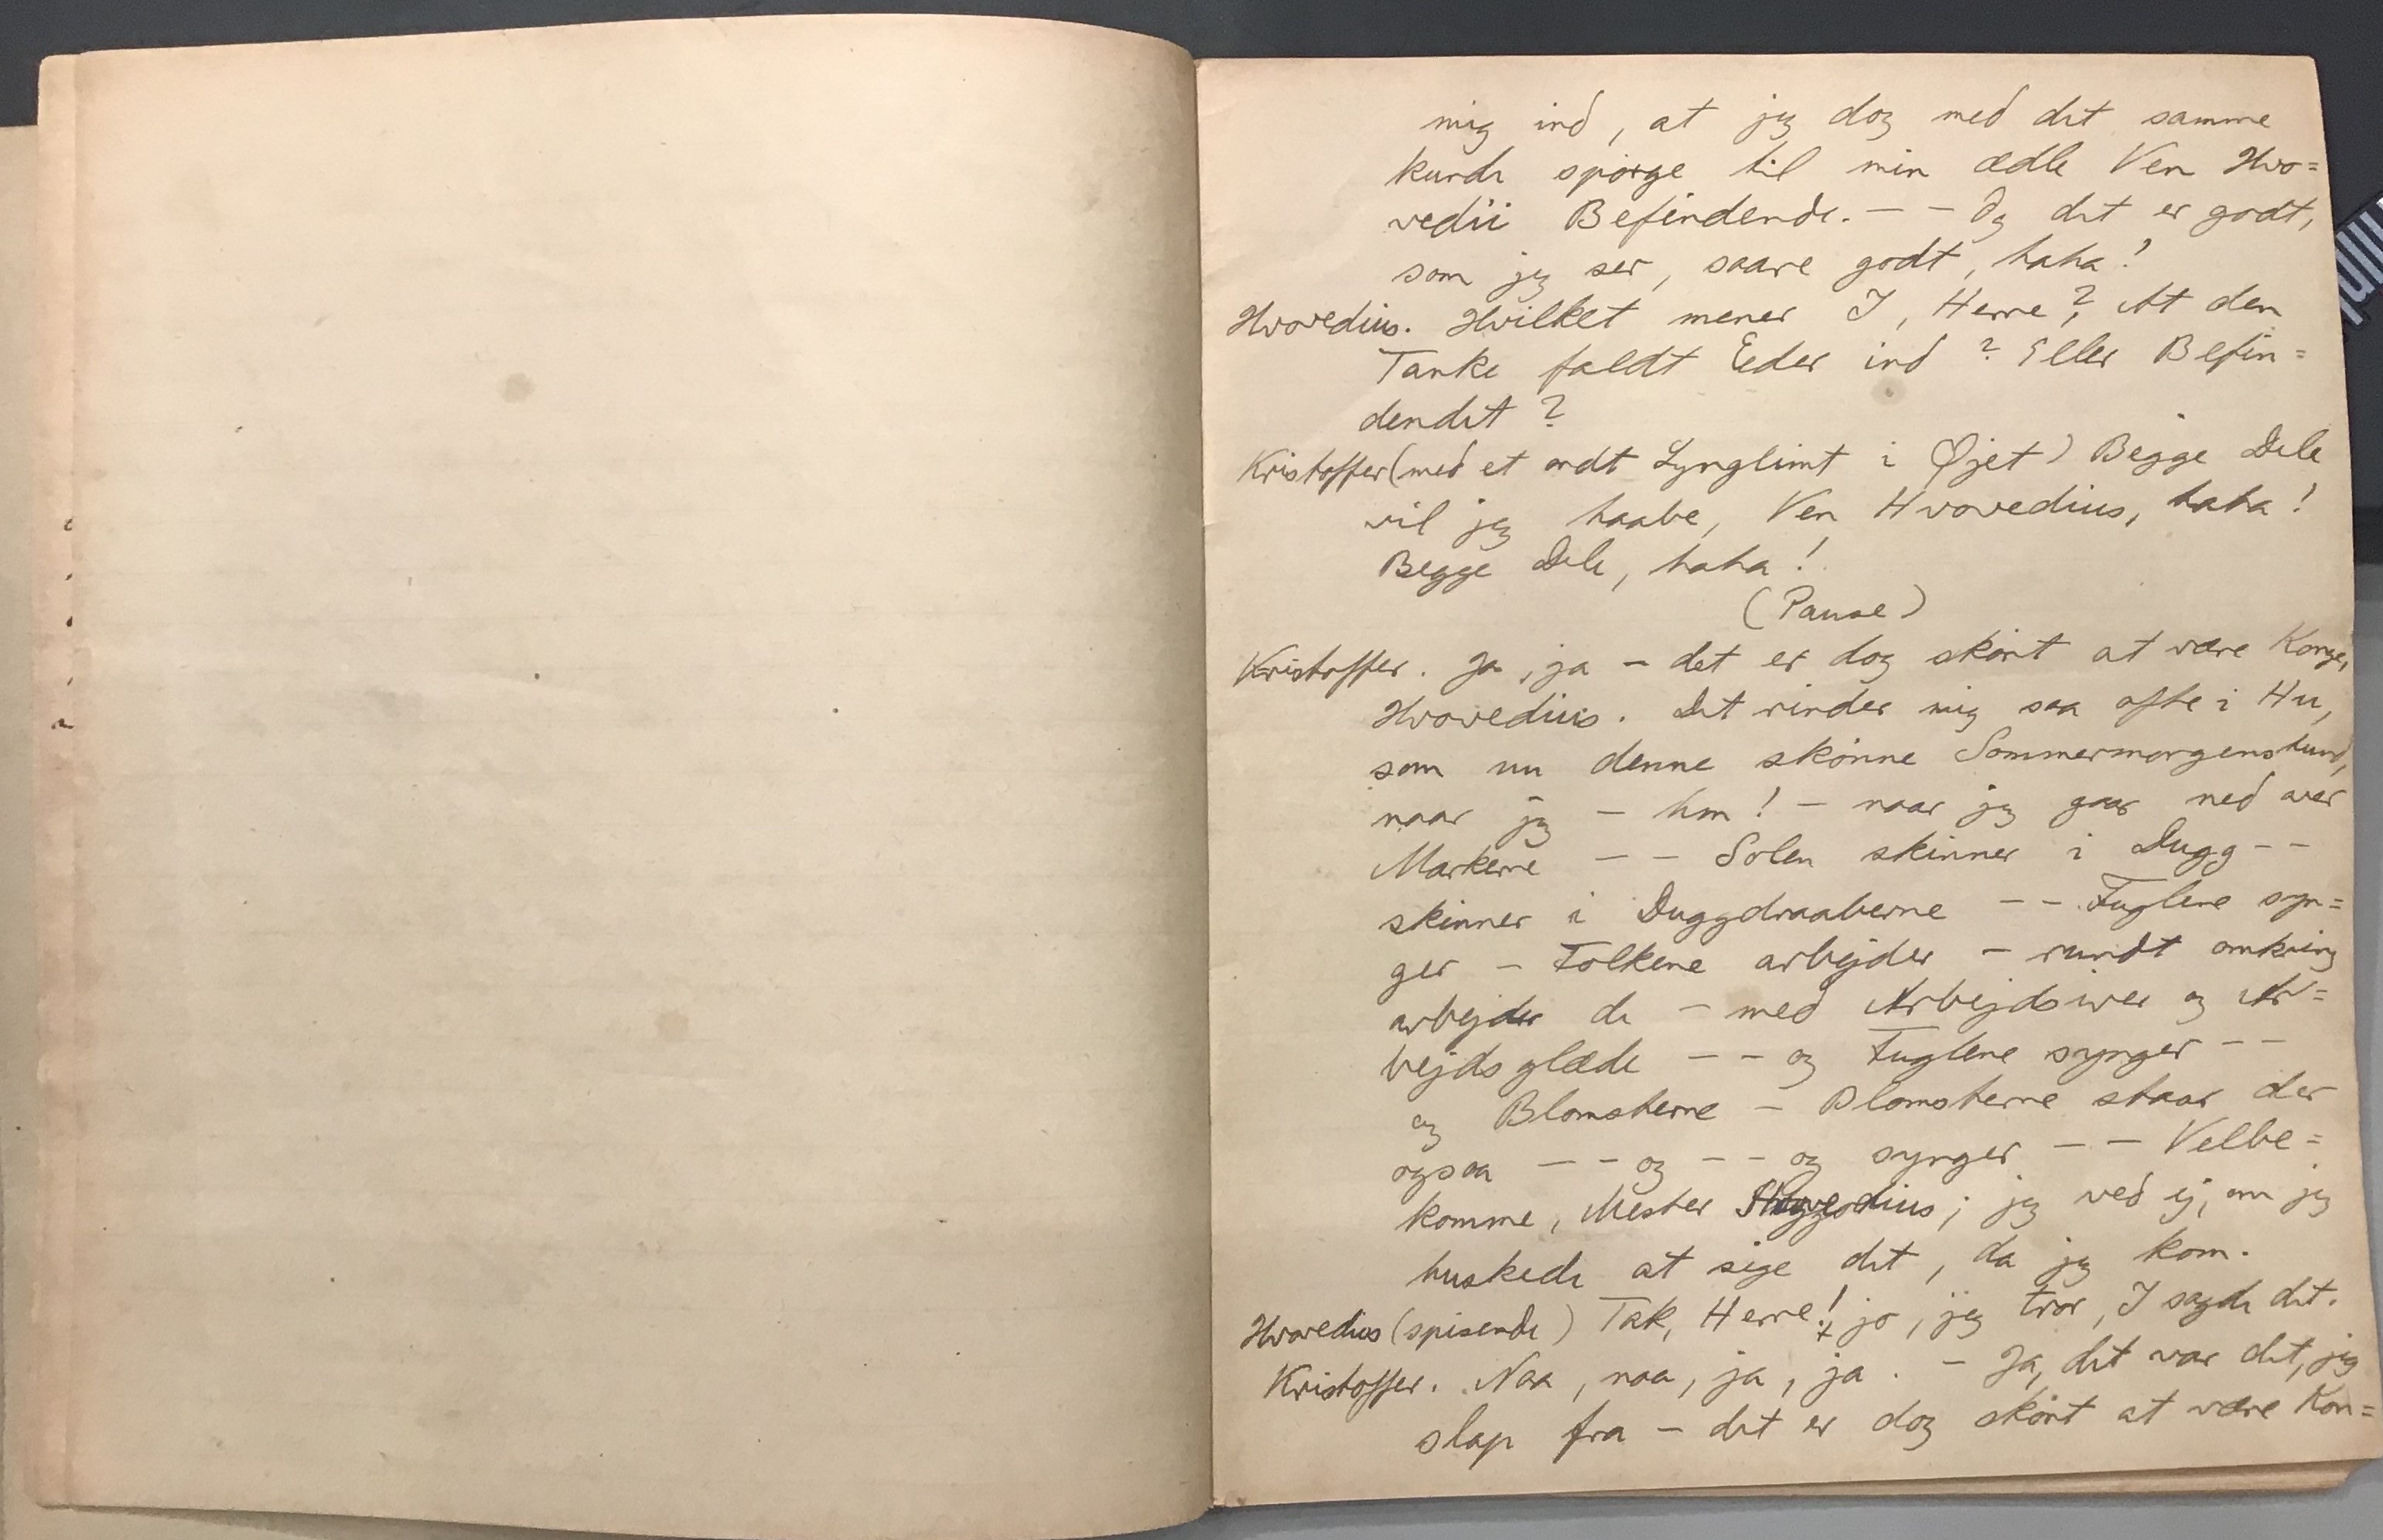 mig ind, at jeg dog med det samme
kunde spörge til min ædle Ven Hvo=
vedii Befindende. — — Og det er godt,
som jeg ser, saare godt, haha!
Hvovedius. Hvilket mener I, Herre? At den
Tanke faldt Eder ind? Eller Befin=
dendet?
Kristoffer (med et ondt Lynglimt i Øjet) Begge Dele
vil jeg haabe, Ven Hvovedius, haha!
Begge Dele, haha!
(Pause)
Kristoffer. Ja, ja — det er dog skönt at være Konge,
Hvovedius. Det rinder mig saa ofte i Hu,
som nu denne skönne Sommermorgenstund,
naar jeg — hm! — naar jeg gaar ned over
Markerne — — Solen skinner i Dugg — —
skinner i Duggdraaberne — — Fuglene syn=
ger — Folkene arbejder — rundt omkring
arbejder de — med Arbejdsiver og Ar=
bejdsglæde — — og Fuglene synger — —
og Blomsterne — Blomsterne staar der
ogsaa — — og — — og synger — — Velbe=
komme, Mester Hvovedius; jeg ved ej, om jeg
huskede at sige det, da jeg kom.
Hvovedius (spisende) Tak, Herre! jo, jeg tror, I sagde det.
Kristoffer. Naa, naa, ja, ja. — Ja, det var det, jeg
slap fra — det er dog skönt at være Kon=